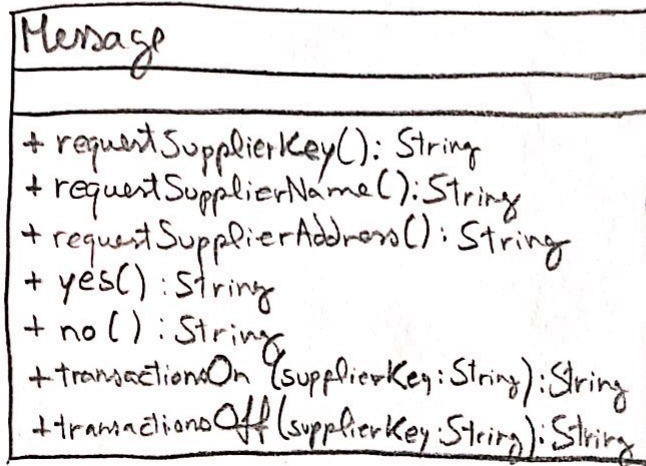 Message
+ requestSupplierKey(): String
+ requestSupplierName(): String
+ requestSupplierAddress(): String
+ yes() : String
+ no() : String
+ transactionsOn (supplierKey: String): String
+ transactionsOff (supplierKey: String): String